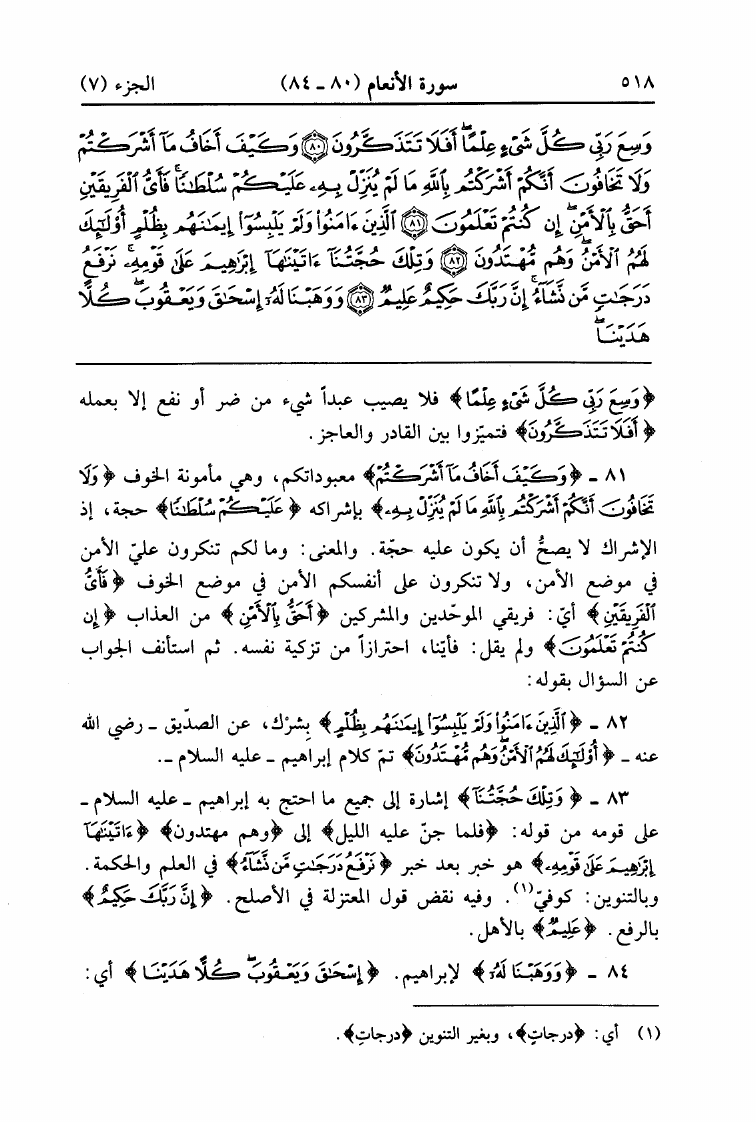 ٥١٨ سورة الأنعام (٨٠ - ٨٤) الجزء (٧)
وَسِعَ رَبِّي كُلَّ شَيْءٍ عِلْمًا أَفَلَا تَتَذَكَّرُونَ ﴿٨٠﴾ وَكَيْفَ أَخَافُ مَا أَشْرَكْتُمْ
وَلَا تَخَافُونَ أَنَّكُمْ أَشْرَكْتُم بِاللَّهِ مَا لَمْ يُنَزِّلْ بِهِ عَلَيْكُمْ سُلْطَانًا فَأَيُّ الْفَرِيقَيْنِ
أَحَقُّ بِالْأَمْنِ إِن كُنتُمْ تَعْلَمُونَ ﴿٨١﴾ الَّذِينَ ءَامَنُوا وَلَمْ يَلْبِسُوا إِيمَانَهُم بِظُلْمٍ أُولَئِكَ
لَهُمُ الْأَمْنُ وَهُم مُّهْتَدُونَ ﴿٨٢﴾ وَتِلْكَ حُجَّتُنَا ءَاتَيْنَاهَا إِبْرَاهِيمَ عَلَى قَوْمِهِ نَرْفَعُ
دَرَجَاتٍ مَّن نَّشَاءُ إِنَّ رَبَّكَ حَكِيمٌ عَلِيمٌ ﴿٨٣﴾ وَوَهَبْنَا لَهُ إِسْحَاقَ وَيَعْقُوبَ كُلًّا
هَدَيْنَا
﴿وَسِعَ رَبِّي كُلَّ شَيْءٍ عِلْمًا﴾ فلا يصيب عبداً شيء من ضر أو نفع إلا بعمله
﴿أَفَلَا تَتَذَكَّرُونَ﴾ فتميّزوا بين القادر والعاجز.
٨١ - ﴿وَكَيْفَ أَخَافُ مَا أَشْرَكْتُمْ﴾ معبوداتكم، وهي مأمونة الخوف ﴿وَلَا
تَخَافُونَ أَنَّكُمْ أَشْرَكْتُم بِاللَّهِ مَا لَمْ يُنَزِّلْ بِهِ﴾ بإشراكه ﴿عَلَيْكُمْ سُلْطَانًا﴾ حجة، إذ
الإشراك لا يصحُّ أن يكون عليه حجّة. والمعنى: وما لكم تنكرون عليّ الأمن
في موضع الأمن، ولا تنكرون على أنفسكم الأمن في موضع الخوف ﴿فَأَيُّ
الْفَرِيقَيْنِ﴾ أيّ: فريقي الموحّدين والمشركين ﴿أَحَقُّ بِالْأَمْنِ﴾ من العذاب ﴿إِن
كُنتُمْ تَعْلَمُونَ﴾ ولم يقل: فأيّنا، احترازاً من تزكية نفسه. ثم استأنف الجواب
عن السؤال بقوله:
٨٢ - ﴿الَّذِينَ ءَامَنُوا وَلَمْ يَلْبِسُوا إِيمَانَهُم بِظُلْمٍ﴾ بِشرْك، عن الصدّيق - رضي الله
عنه - ﴿أُولَئِكَ لَهُمُ الْأَمْنُ وَهُم مُّهْتَدُونَ﴾ تمّ كلام إبراهيم - عليه السلام -.
٨٣ - ﴿وَتِلْكَ حُجَّتُنَا﴾ إشارة إلى جميع ما احتج به إبراهيم - عليه السلام -
على قومه من قوله: ﴿فلما جنّ عليه الليل﴾ إلى ﴿وهم مهتدون﴾ ﴿ءَاتَيْنَاهَا
إِبْرَاهِيمَ عَلَى قَوْمِهِ﴾ هو خبر بعد خبر ﴿نَرْفَعُ دَرَجَاتٍ مَّن نَّشَاءُ﴾ في العلم والحكمة.
وبالتنوين: كوفيّ(١). وفيه نقض قول المعتزلة في الأصلح. ﴿إِنَّ رَبَّكَ حَكِيمٌ﴾
بالرفع. ﴿عَلِيمٌ﴾ بالأهل.
٨٤ - ﴿وَوَهَبْنَا لَهُ﴾ لإبراهيم. ﴿إِسْحَاقَ وَيَعْقُوبَ كُلًّا هَدَيْنَا﴾ أي:
(١) أي: ﴿درجاتٍ﴾، وبغير التنوين ﴿درجاتِ﴾.